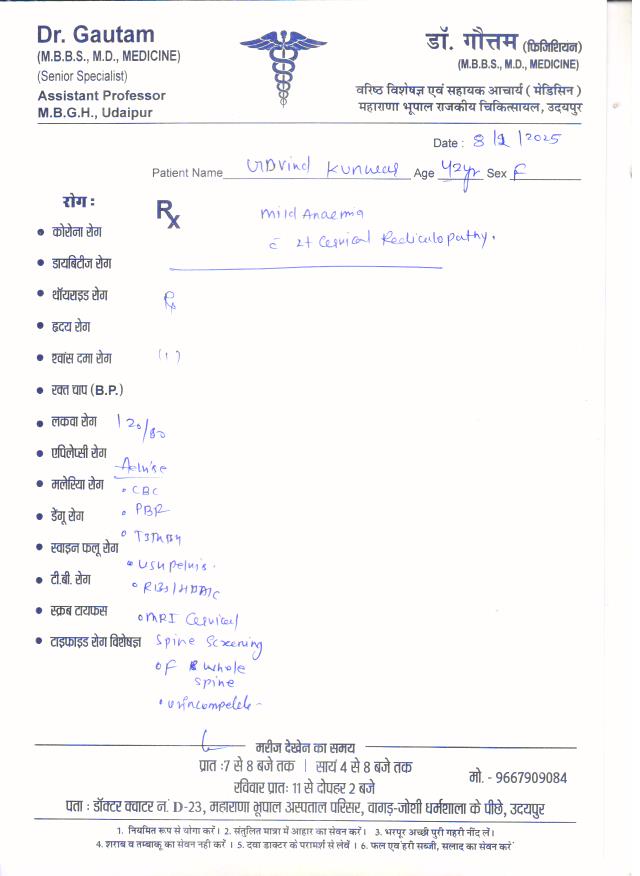 Dr. Gautam
(M.B.B.S., M.D., MEDICINE)
(Senior Specialist)
Assistant Professor
M.B.G.H., Udaipur
डॉ. गौत्तम (फिजिशियन)
(M.B.B.S., M.D., MEDICINE)
वरिष्ठ विशेषज्ञ एवं सहायक आचार्य ( मेडिसिन )
महाराणा भूपाल राजकीय चिकित्सायल, उदयपुर
Date : 8/1/2025
Patient Name Kunwar Age 42yr Sex F
रोग :
Rx
Mild Anaemia
c̄ Lt Cervical Rediculopathy.
• कोरोना रोग
• डायबिटीज रोग
• थॉयराइड रोग
Rx
• हृदय रोग
• श्वांस दमा रोग
(1)
• रक्त चाप (B.P.)
• लकवा रोग 120/80
• एपिलेप्सी रोग
Advise
• मलेरिया रोग
• CBC
• डेंगू रोग
• PBF
• स्वाइन फलू रोग
• USG pelvis.
• टी.बी. रोग
• RBS/HbA1c
• स्क्रब टायफस
• MRI Cervical
• टाइफाइड रोग विशेषज्ञ
Spine Screening
of whole
spine
मरीज देखेन का समय
प्रात :7 से 8 बजे तक | सायं 4 से 8 बजे तक
रविवार प्रातः 11 से दोपहर 2 बजे
मो. - 9667909084
पता : डॉक्टर क्वाटर नं. D-23, महाराणा भूपाल अस्पताल परिसर, वागड़-जोशी धर्मशाला के पीछे, उदयपुर
1. नियमित रूप से योगा करें। 2. संतुलित मात्रा में आहार का सेवन करें। 3. भरपूर अच्छी पुरी गहरी नींद लें।
4. शराब व तम्बाकू का सेवन नही करें । 5. दवा डाक्टर के परामर्श से लेवें । 6. फल एवं हरी सब्जी, सलाद का सेवन करें